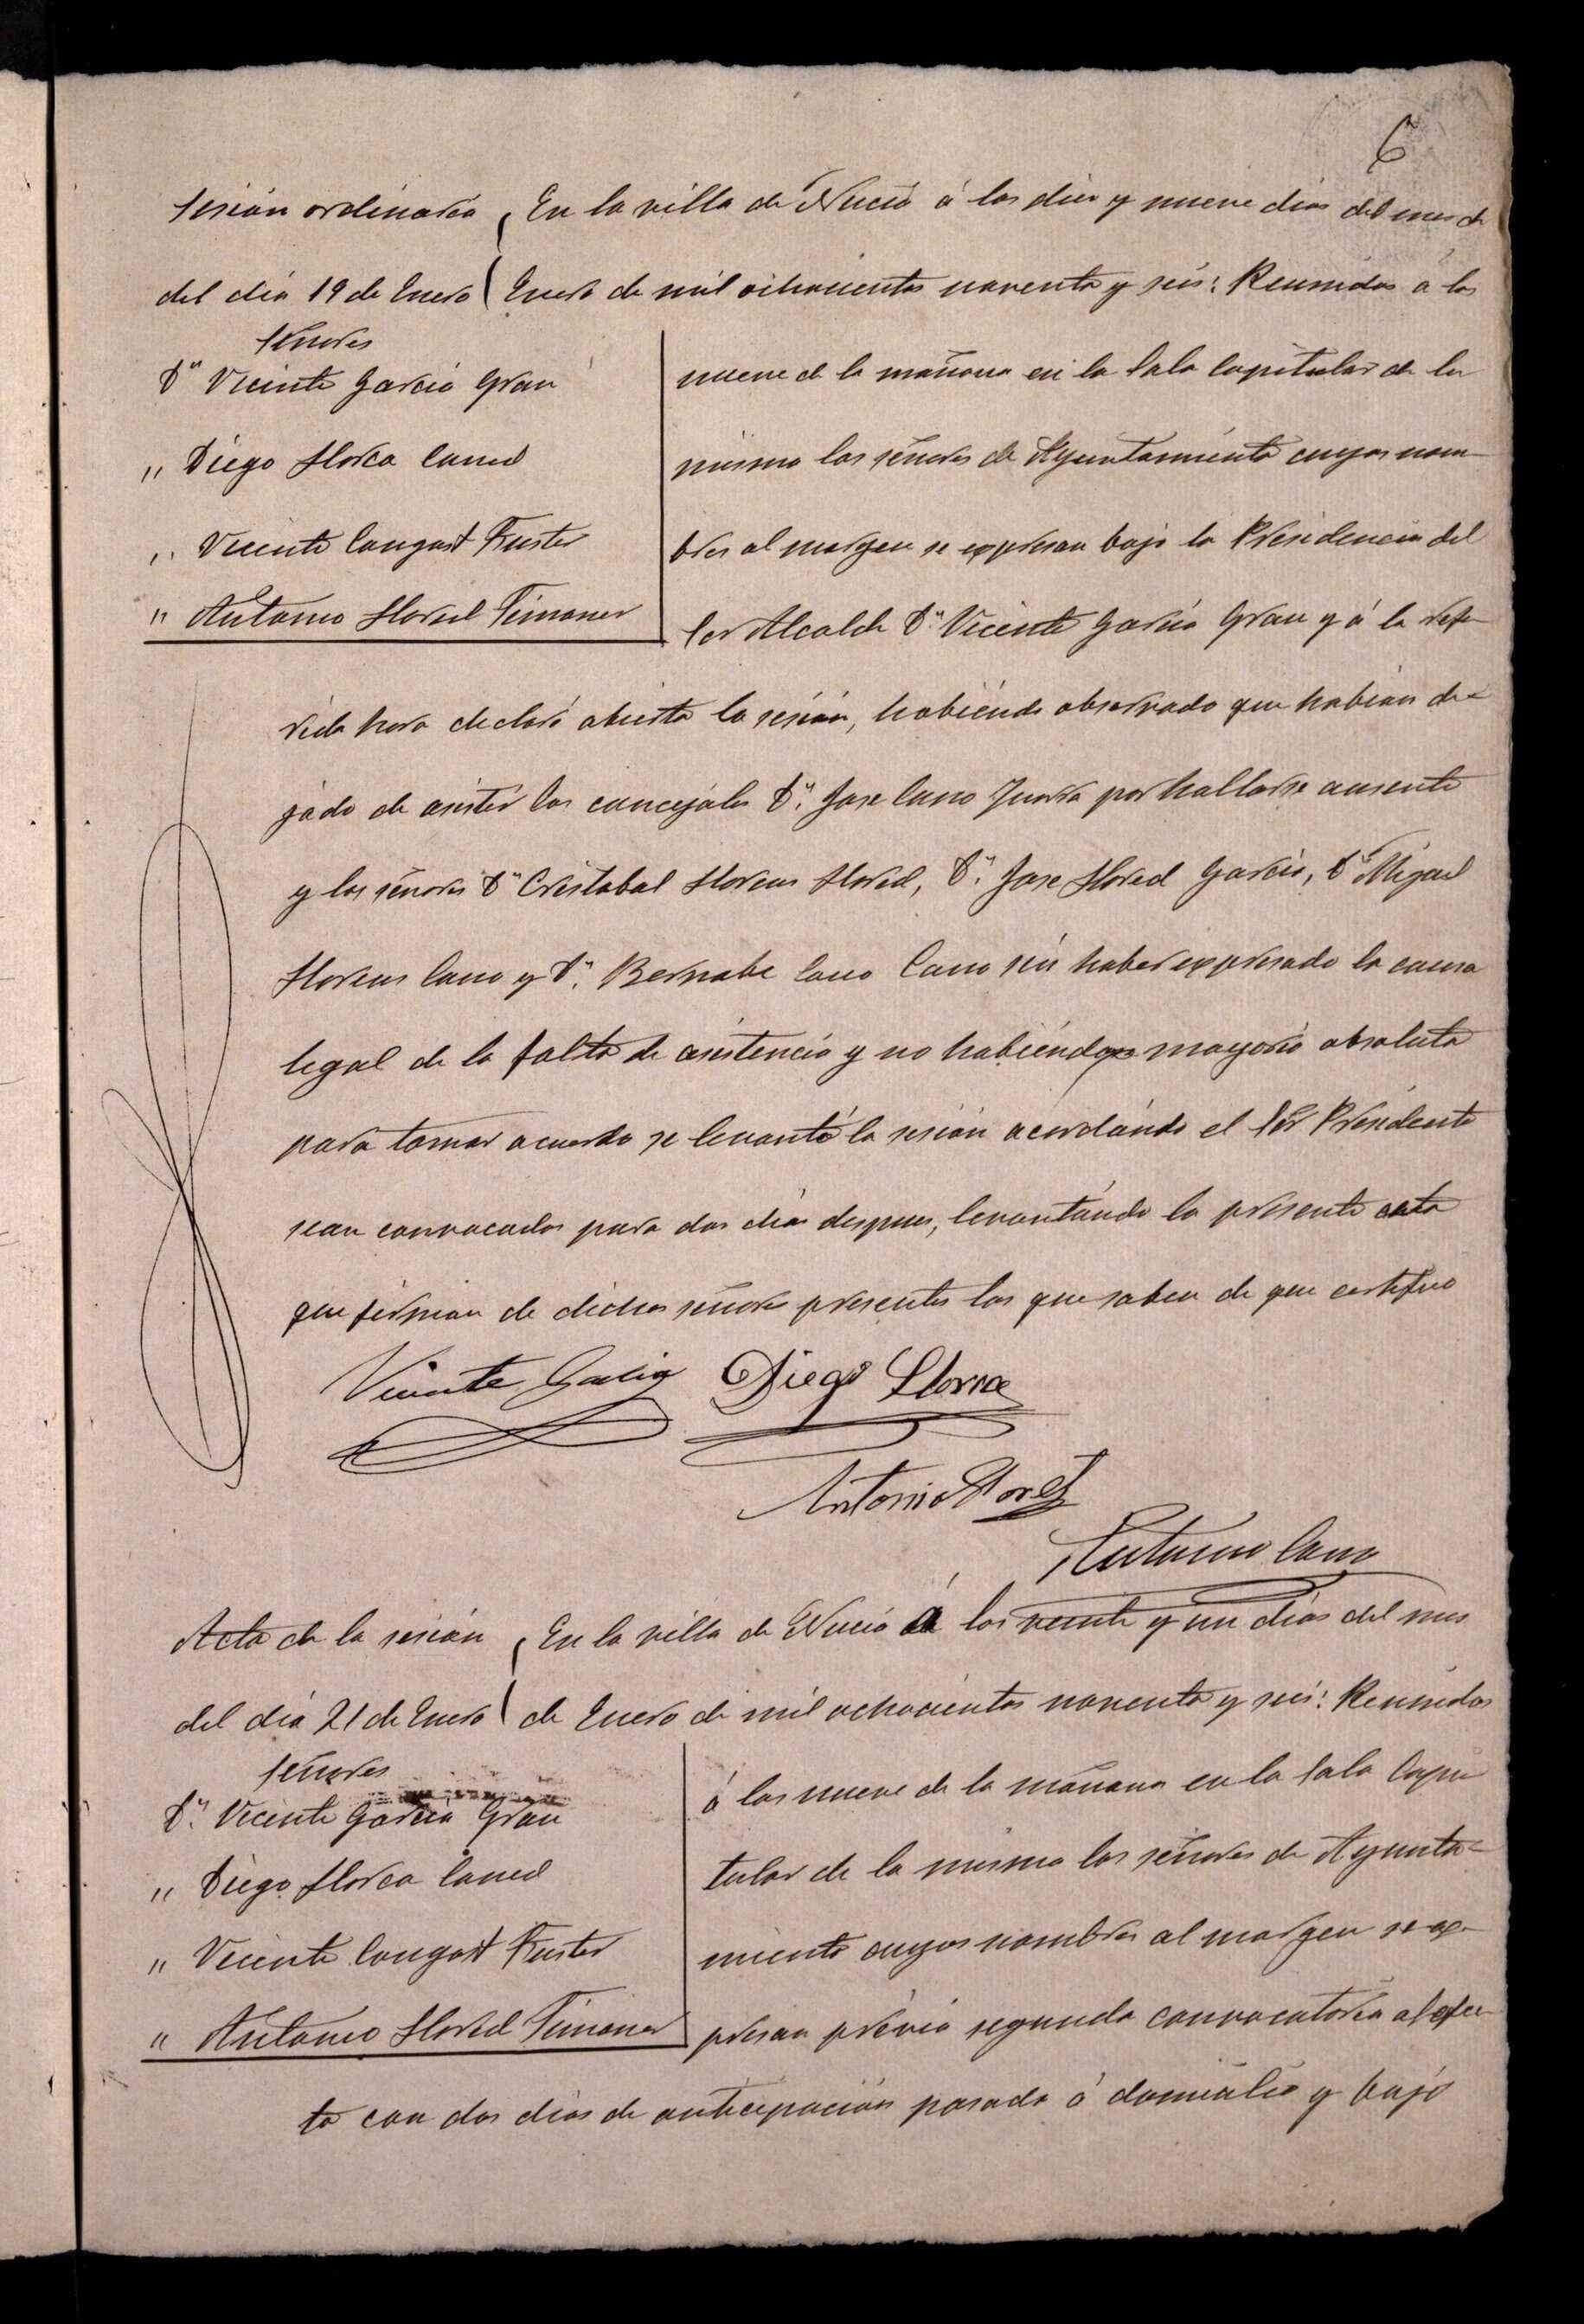 6
Sesión ordinaria
del dia 19 de Enero
Señores
Dn Vicente Garcia Grau
" Diego Llorca
" Vicente Congost Fuster
" Antonio Lloret Timoner
En la villa de Nucia á los diez y nueve dias del mes de
Enero de mil ochocientos noventa y seis: Reunidos á las
nueve de la mañana en la Sala Capitular de la
misma los señores de Ayuntamiento cuyos nom-
bres al margen se expresan bajo la Presidencia del
Sor Alcalde Dn Vicente Garcia Grau y á la refe-
rida hora declaró abierta la sesión, habiendo observado que habian de-
jado de asistir los concejales Dn. Jose Cano por hallarse ausente
y los señores Dn Cristobal Llorens Lloret, Dn. Jose Lloret Garcia, Dn Miguel
Llorens Cano y Dn. Bernabe Cano Cano sin haber expresado la causa
legal de la falta de asistencia y no habiendo mayoria absoluta
para tomar acuerdo se levantó la sesión acordando el Sor Presidente
sean convocados para dos dias despues, levantando la presente acta
que firman de dichos señores presentes los que saben de que certifico
Vicente Garcia Diego Llorca
Antonio Lloret
Antonio Cano
Acta de la sesión
del dia 21 de Enero
Señores
Dn. Vicente Garcia Grau
" Diego Llorca
" Vicente Congost Fuster
" Antonio Lloret Timoner
En la villa de Nucia á los veinte y un dias del mes
de Enero de mil ochocientos noventa y seis: Reunidos
á las nueve de la mañana en la Sala Capi
tular de la misma los señores de Ayunta-
miento cuyos nombres al margen se ex-
presan prévia segunda convocatoria al efec-
to con dos dias de anticipación pasada á domicilio y bajo